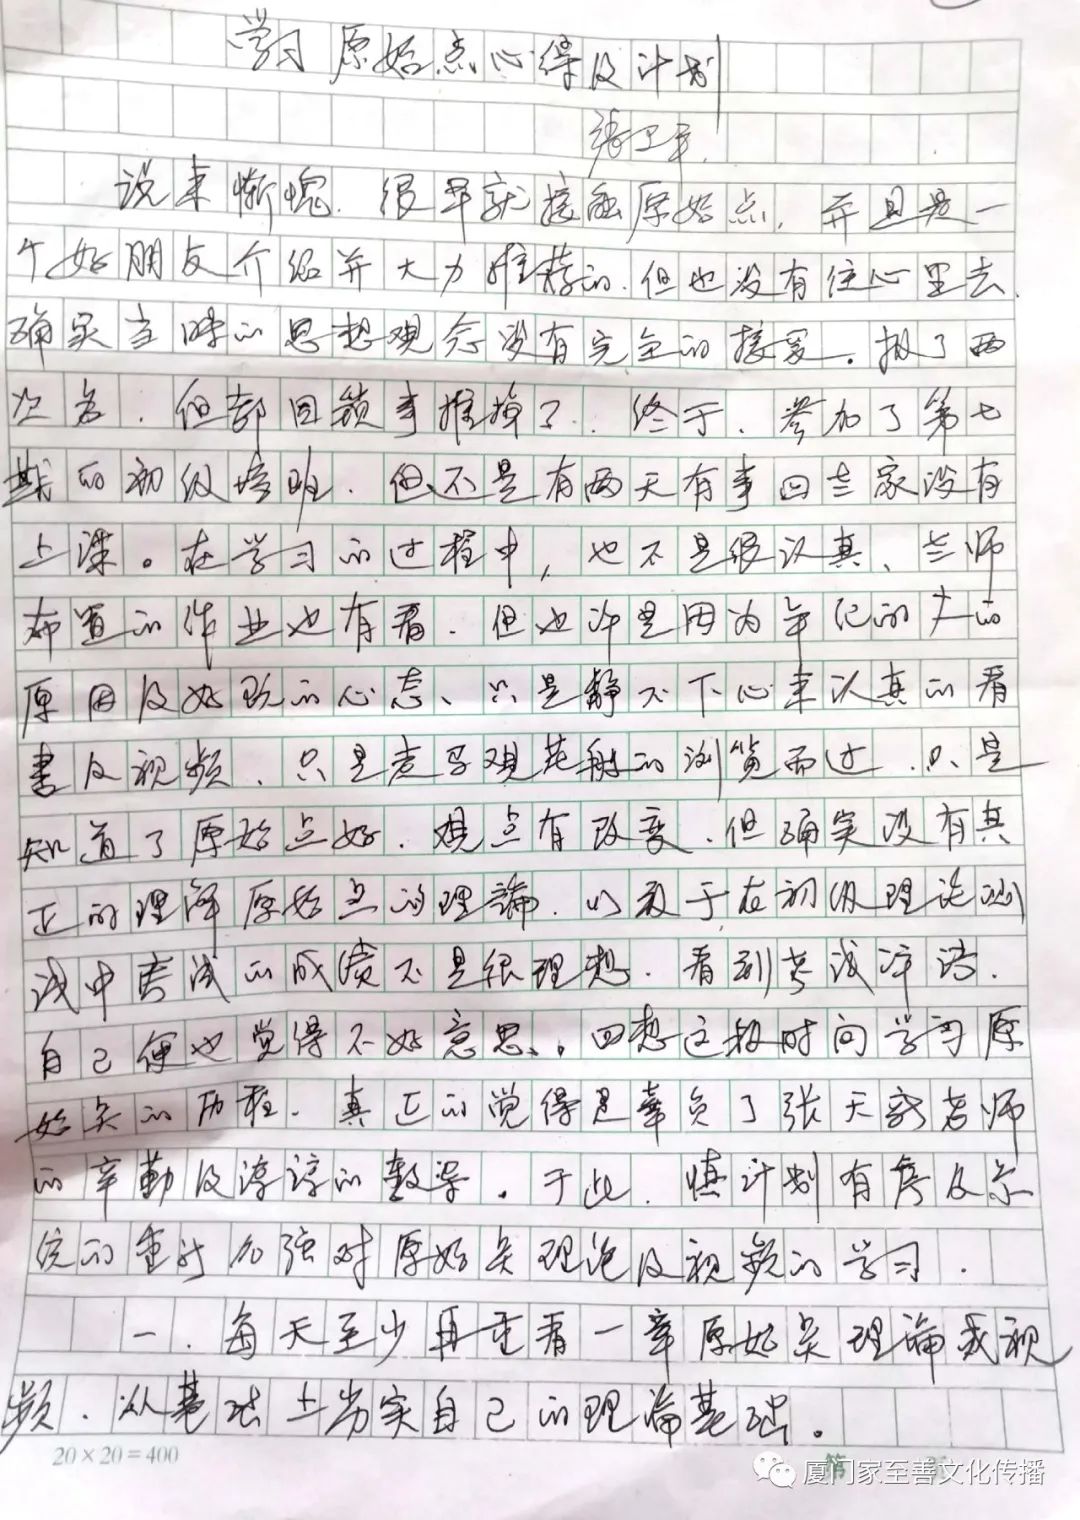 学习原始点心得及计划
张卫平.
说来惭愧.很早就接触原始点,并且是一
个好朋友介绍并大力推荐的.但也没有往心里去.
确实当时的思想观念没有完全的接受.报了两
次名.但都因锁事推掉了.终于.参加了第七
期的初级培班.但不是有两天有事回老家没有
上课。在学习的过程中,也不是很认真、老师
布置的作业也有看.但也许是因为年纪的大的
原因及好玩的心态、只是静不下心来认真的看
书及视频.只是走马观花般的浏览而过.只是
知道了原始点好.观点有改变.但确实没有真
正的理解原始点的理論.以致于在初级理论测
试中考试的成绩不是很理想.看到考试评语.
自己便也觉得不好意思.回想这段时间学习原
始点的历程.真正的觉得是辜负了张天新老师
的辛勤及谆谆的教导.于此.慎计划有序及系
统的重新加强对原始点理论及视频的学习.
一.每天至少再重看一章原始点理論或视
频.从基础上夯实自己的理論基础。
20×20=400
第
厦门家至善文化传播